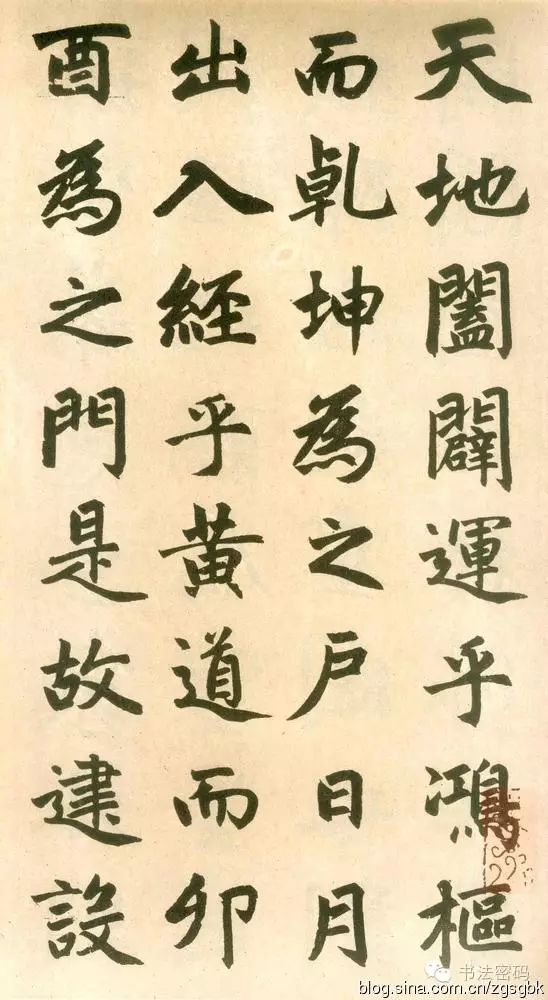 天地闔闢運乎鴻樞
而乹坤為之户日月
出入經乎黄道而卯
酉為之門是故建設
书法密码
blog.sina.com.cn/zgsgbk